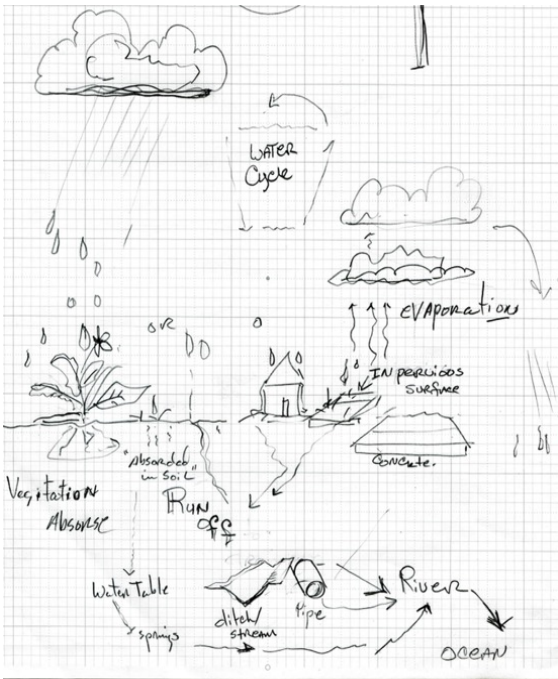 WATER
Cycle
EVAPoration
or
INperVious
Surface
Concrete.
"Absorbed"
in Soil
Vegitation
Absorbs
RUN
off
Water Table
ditch/
stream
Pipe
River
springs
OCEAN